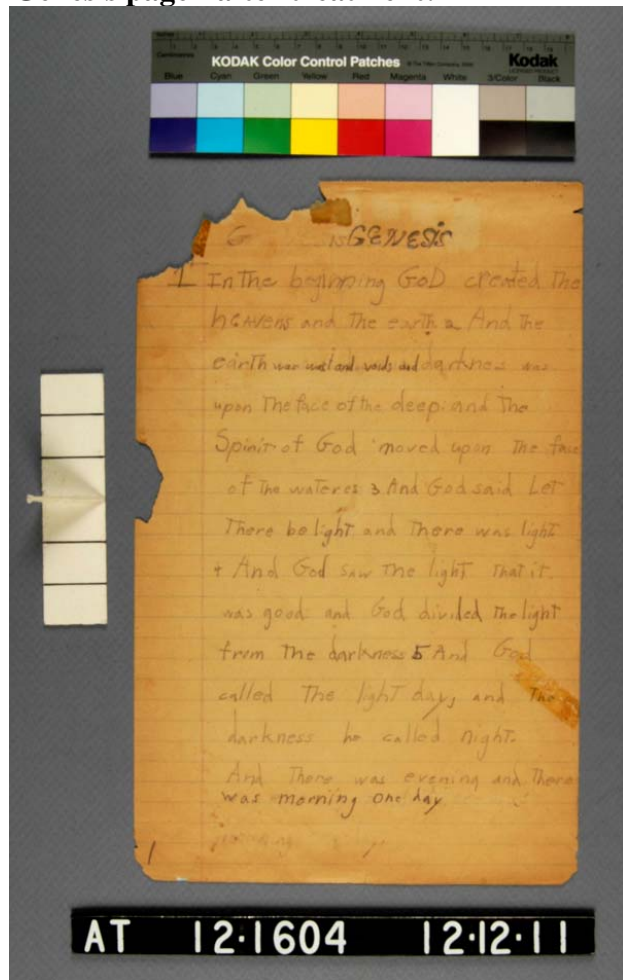 KODAK Color Control Patches
Kodak
Blue Cyan Green Yellow Red Magenta White 3/Color Black
G GENESIS
1 In The beginning GoD created The
heavens and The earth 2 And The
earth was wast and voids and darkness was
upon The face of the deep: and The
Spirit of God moved upon The face
of The wateres 3 And God said Let
There be light and There was light
4 And God saw The light That it
was good and God divided The light
from The darkness 5 And God
called The light day, and The
darkness he called night.
And There was evening and There
was morning one day
1
AT 12·1604 12·12·11